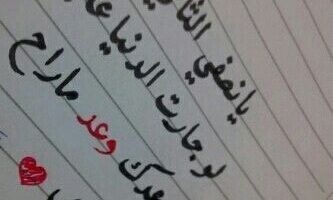 يانصفي الثا
لو جارت الدنيا عا
وعد ماراح